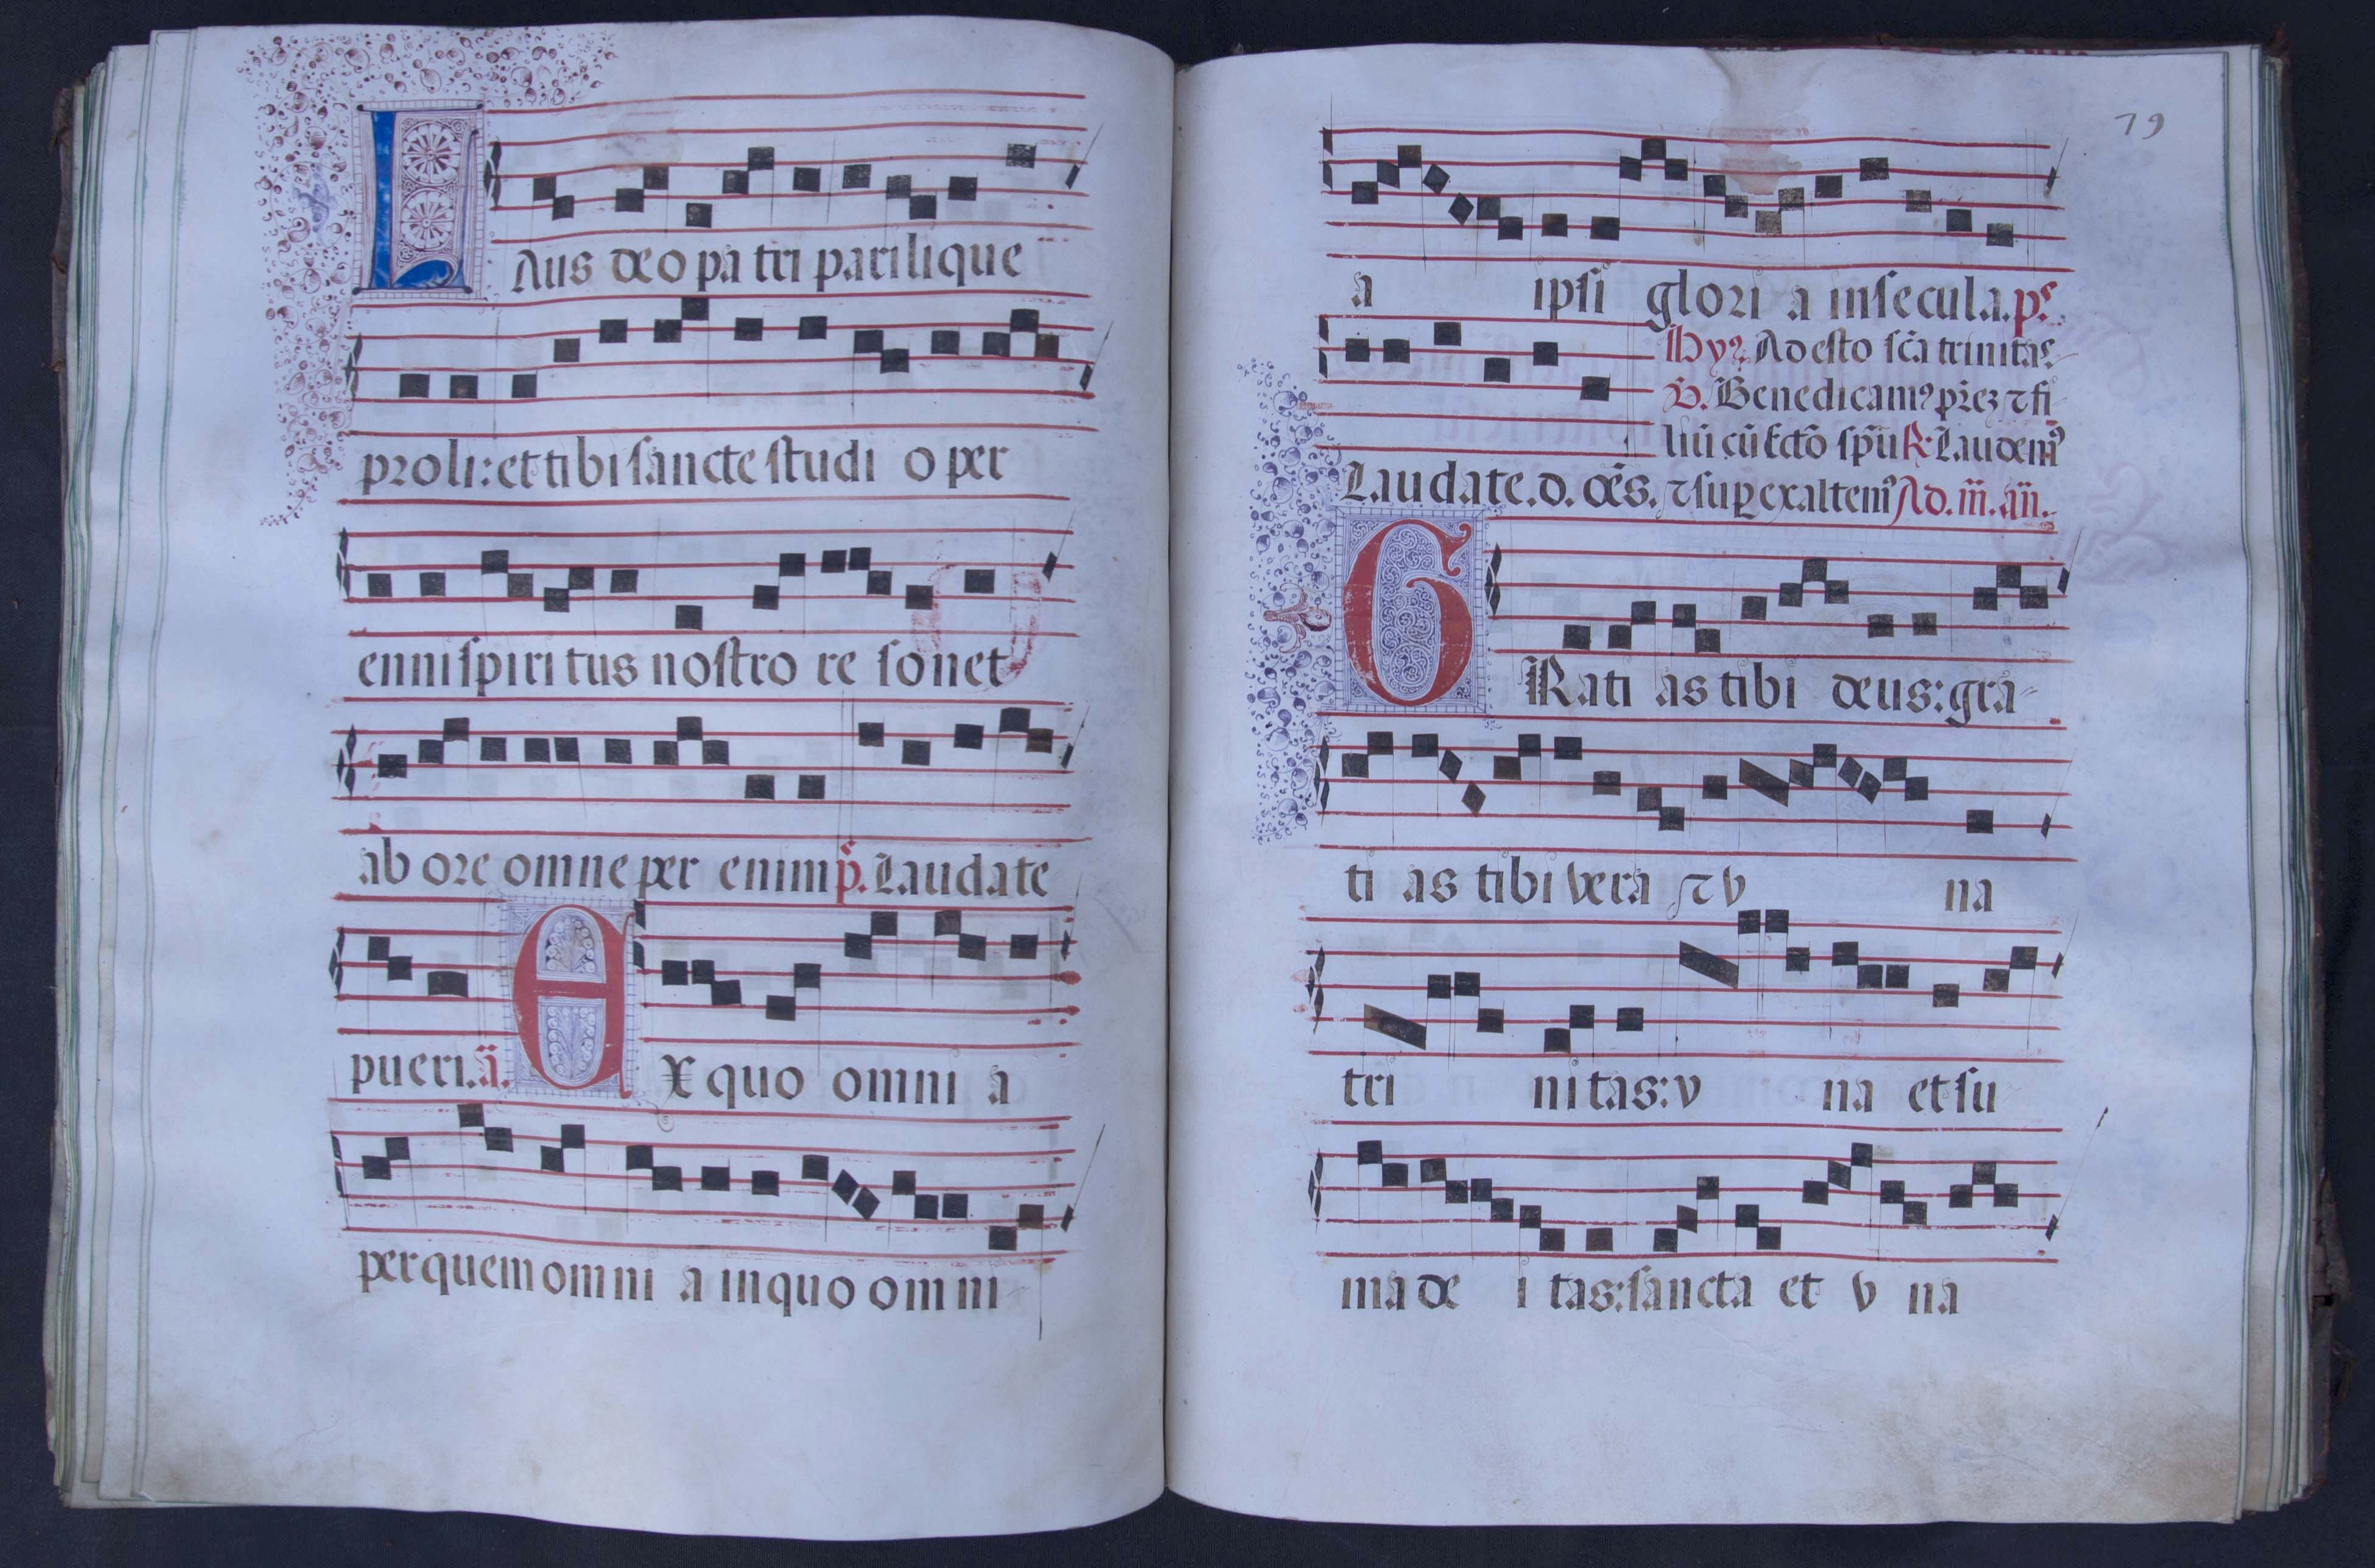 LAus deo pa tri parilique
proli: et tibi sancte studi o per
enni spiri tus nostro re sonet
ab ore omne per enim p̄. Laudate
pueri. ā. EX quo omni a
per quem om ni a in quo om ni
79
a ipsi glori a in secula. ps̄.
Hy9. Adesto sc̄a trinitas.
V̄. Benedicam9 pr̄ez ⁊ fi
liū cū sctō sp̄ū R. Laudem9
Laudate. d. oēs. ⁊ sup exaltem9 Ad. m̄. an̄.
GRati as tibi deus: gra-
ti as tibi vera ⁊ v na
tri ni tas: v na et su
ma de i tas: sancta et v na